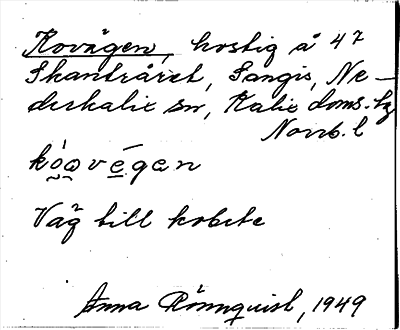 Kovägen, kostig å 47
Skanträret, Sangis, Ne-
derkalix sn, Kalix doms. tg
Norrb. l
kóọvégan
Väg till kobete
Anna Rönnquist, 1949